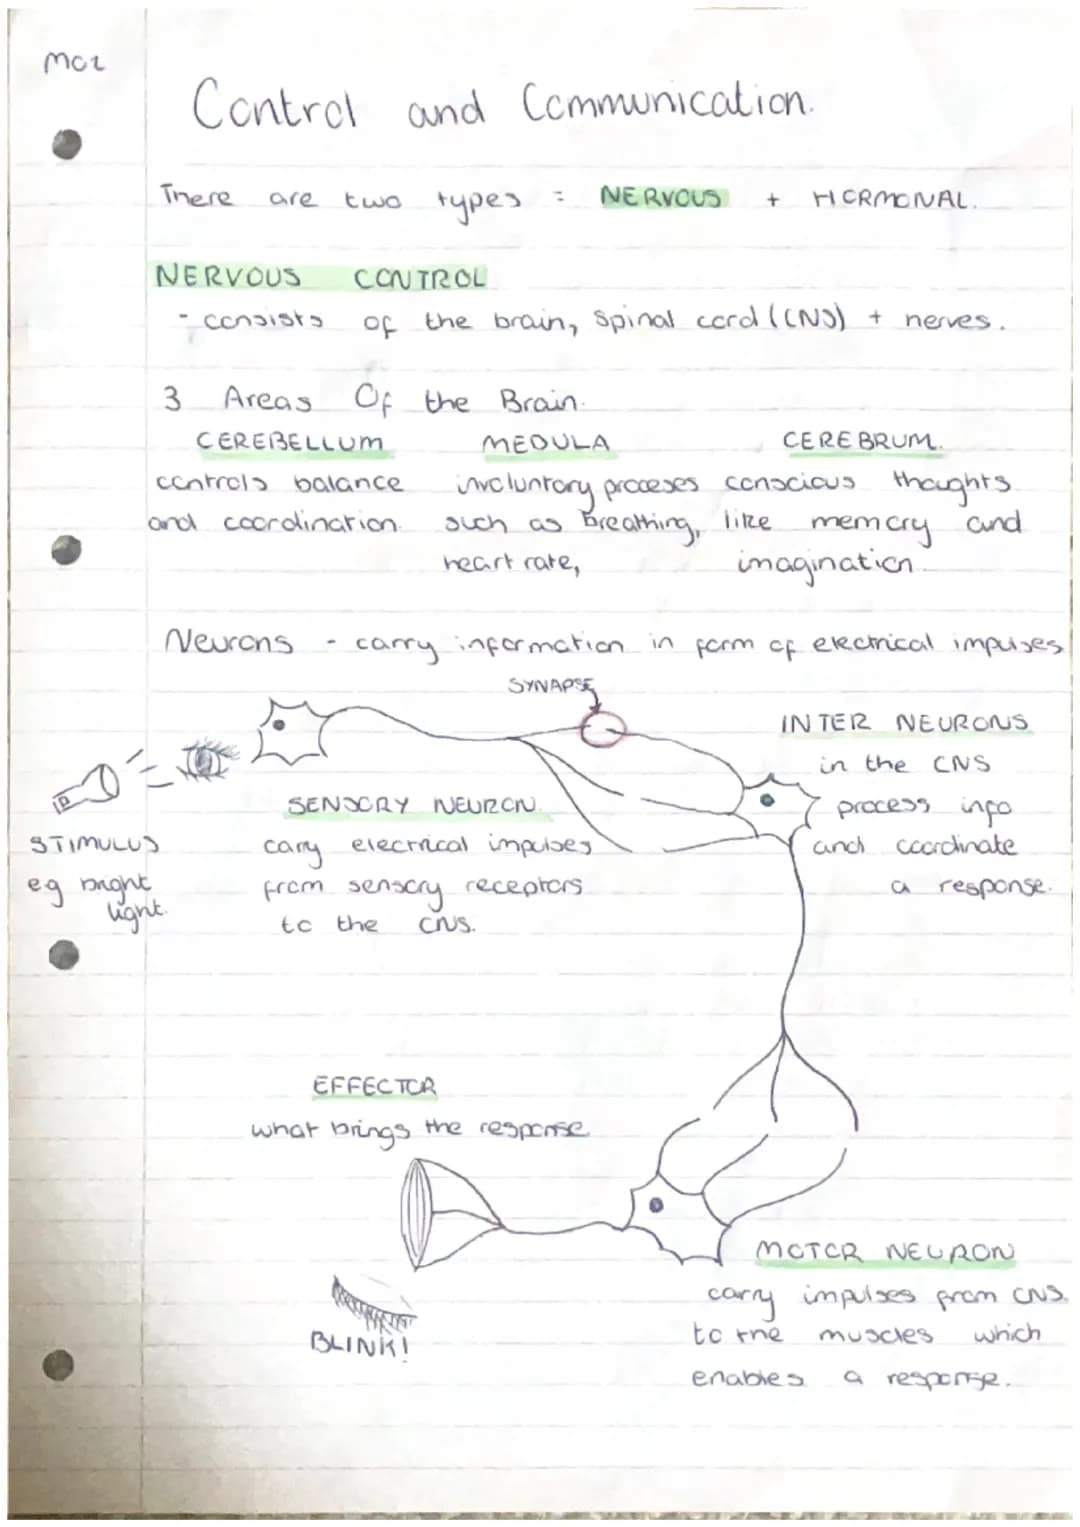 Control and Communication.
There are two types = NERVOUS + HORMONAL.
NERVOUS CONTROL
- consists of the brain, spinal cord (CNS) + nerves.
3 Areas Of the Brain.
CEREBELLUM MEDULA CEREBRUM.
controls balance involuntary proceses conscious thoughts
and coordination. such as Breathing, like memory and
heart rate, imagination.
Neurons - carry information in form of electrical impulses
SYNAPSE
INTER NEURONS
in the CNS
process info
and coordinate
a response.
SENSORY NEURON.
carry electrical impulses
from sensory receptors
to the CNS.
STIMULUS
eg bright
light.
EFFECTOR
what brings the response
BLINK!
MOTOR NEURON
carry impulses from CNS.
to the muscles which
enables a response.